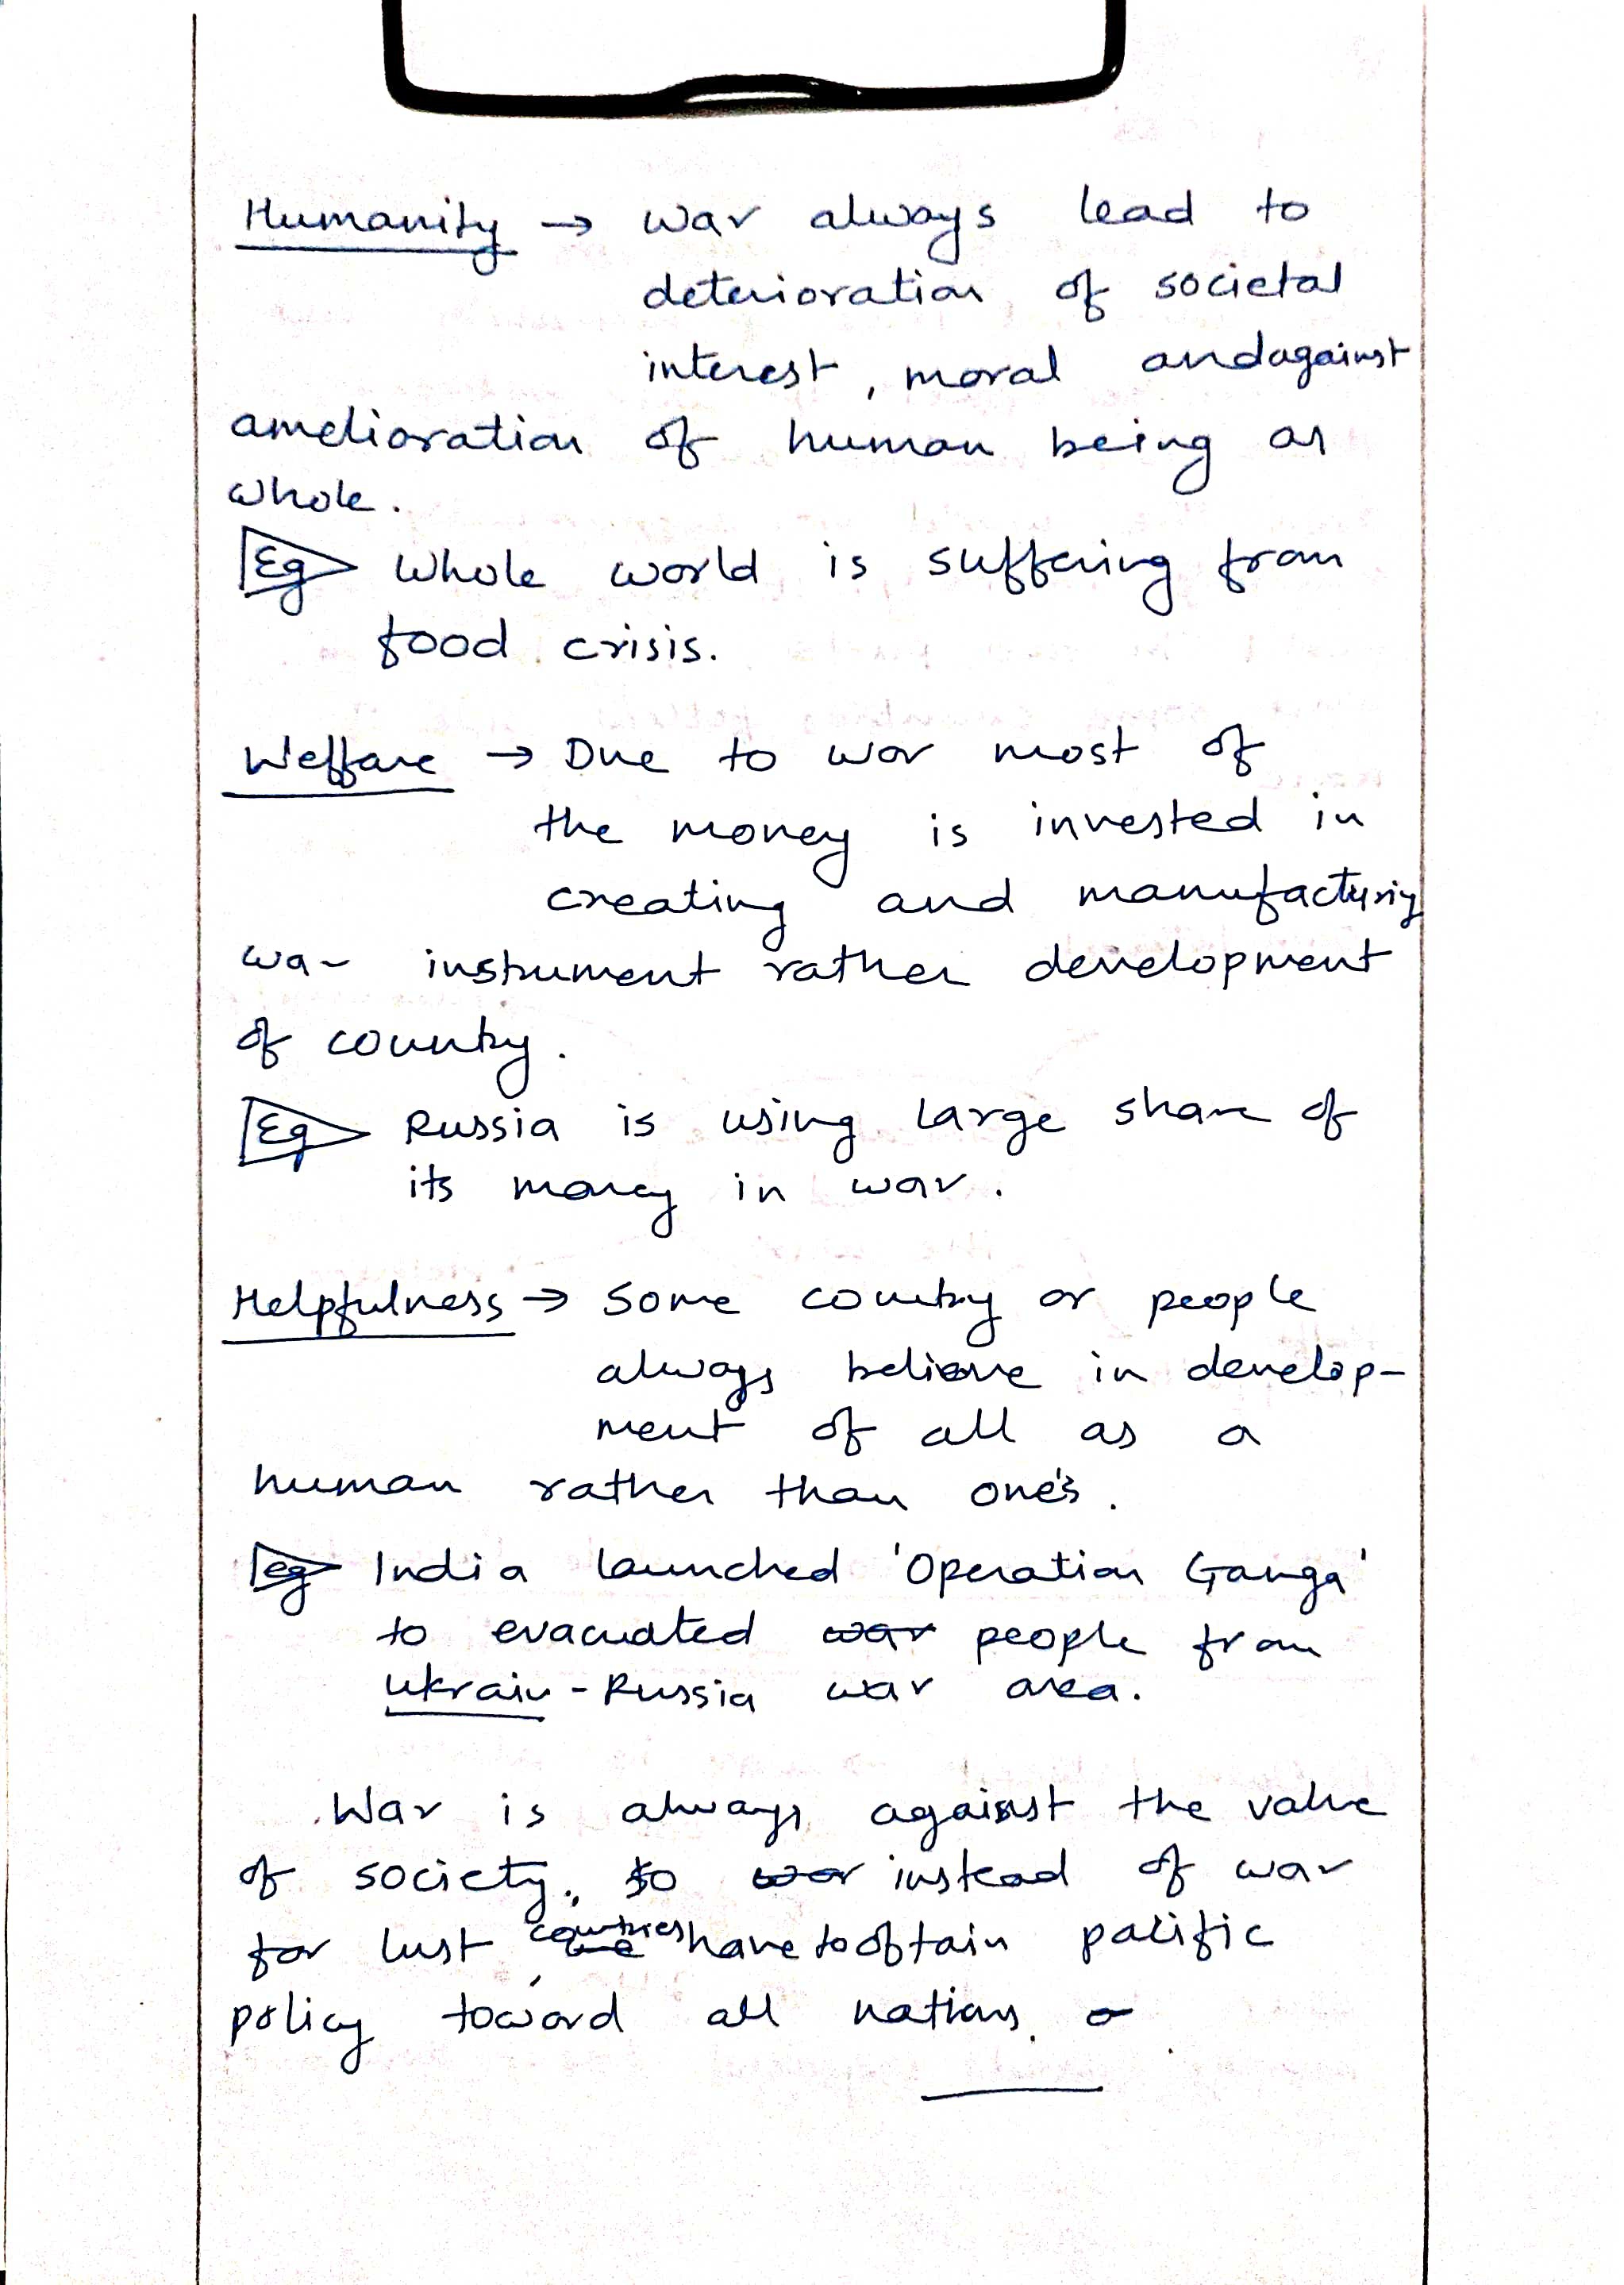 Humanity → War always lead to
deterioration of societal
interest, moral and against
amelioration of human being as
whole.
Eg Whole world is suffering from
food crisis.
Welfare → Due to war most of
the money is invested in
creating and manufacturing
war instrument rather development
of country.
Eg Russia is using large share of
its money in war.
Helpfulness → Some country or people
always believe in develop-
ment of all as a
human rather than one's.
eg India launched 'Operation Ganga'
to evacuated war people from
Ukrain - Russia war area.
War is always against the value
of society. So war instead of war
for lust countries have to oftain pacific
policy toward all nations.